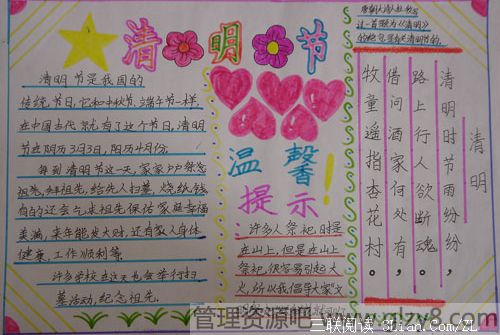 清明节
清明节是我国的
传统节日,它和中秋节、端午节一样,
在中国古代就有了这个节日,清明
节在阴历3月3日,阳历4月份。
每到清明节这一天,家家户户祭
祖先,给先人扫墓,烧纸钱,
有的还会乞求祖先保佑家庭幸福
美满,来年能发大财,还有家人身体
健康,工作顺利等。
许多学校在这天也会举行扫
墓活动,纪念祖先.
温馨
提示!
许多人祭祀时是
在山上,但是在山上
祭祀,很容易引起火
火,所以我倡导大家"文
唐朝大诗人杜牧写
过一首题为《清明》
的绝句是有关清明节的.
清明
清明时节雨纷纷,
路上行人欲断魂。
借问酒家何处有,
牧童遥指杏花村。
管理资源吧 www.glzy8.com
三联阅读 3Lian.Com/ZL